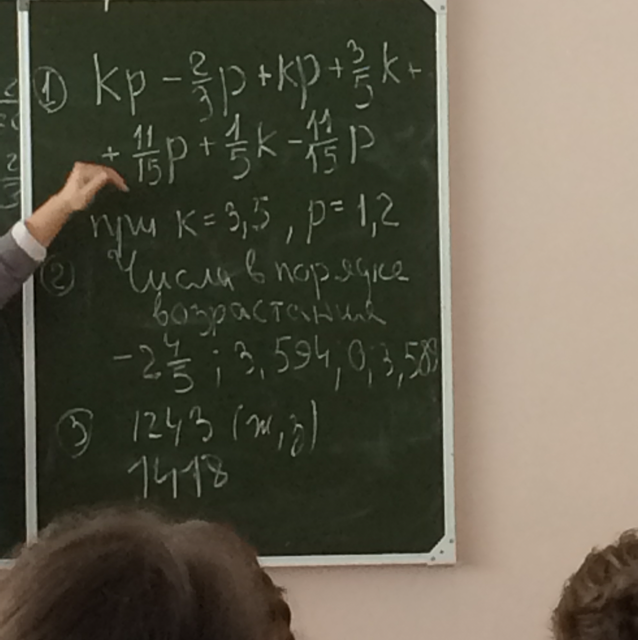 ① kp - 2/3 p + kp + 3/5 k +
+ 11/15 p + 1/5 k - 11/15 p
при k = 3,5 , p = 1,2
② Числа в порядке
возрастания
-2 4/5 ; 3,594; 0; 3,589
③ 1243 (ж,з)
1418